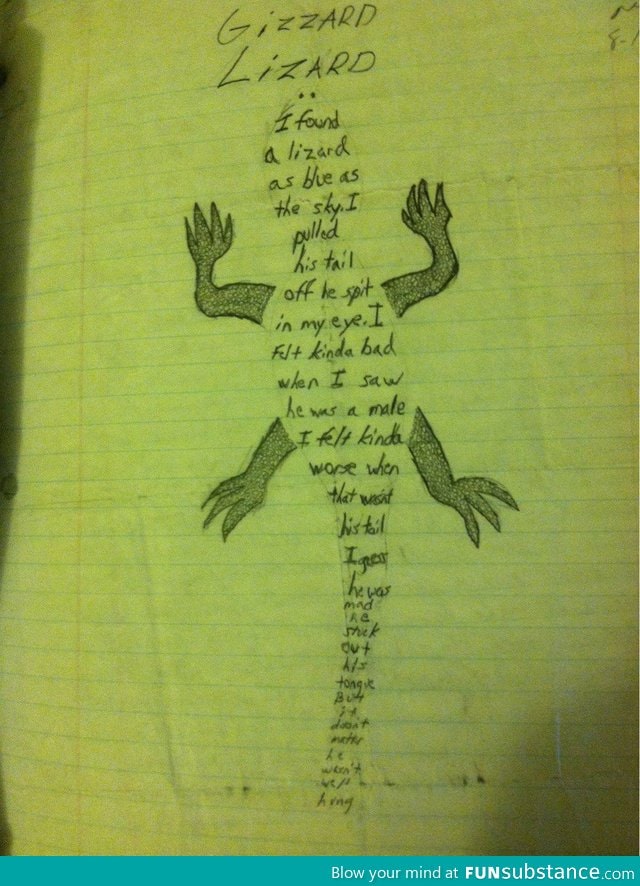 GIZZARD
LIZARD
I found
a lizard
as blue as
the sky. I
pulled
his tail
off he spit
in my eye. I
Felt kinda bad
when I saw
he was a male
I felt kinda
worse when
that wasnt
his tail
I guess
he was
mad
he
stuck
out
his
tongue
But
it
doesnt
matter
he
wasn't
well
hung
Blow your mind at FUNsubstance.com